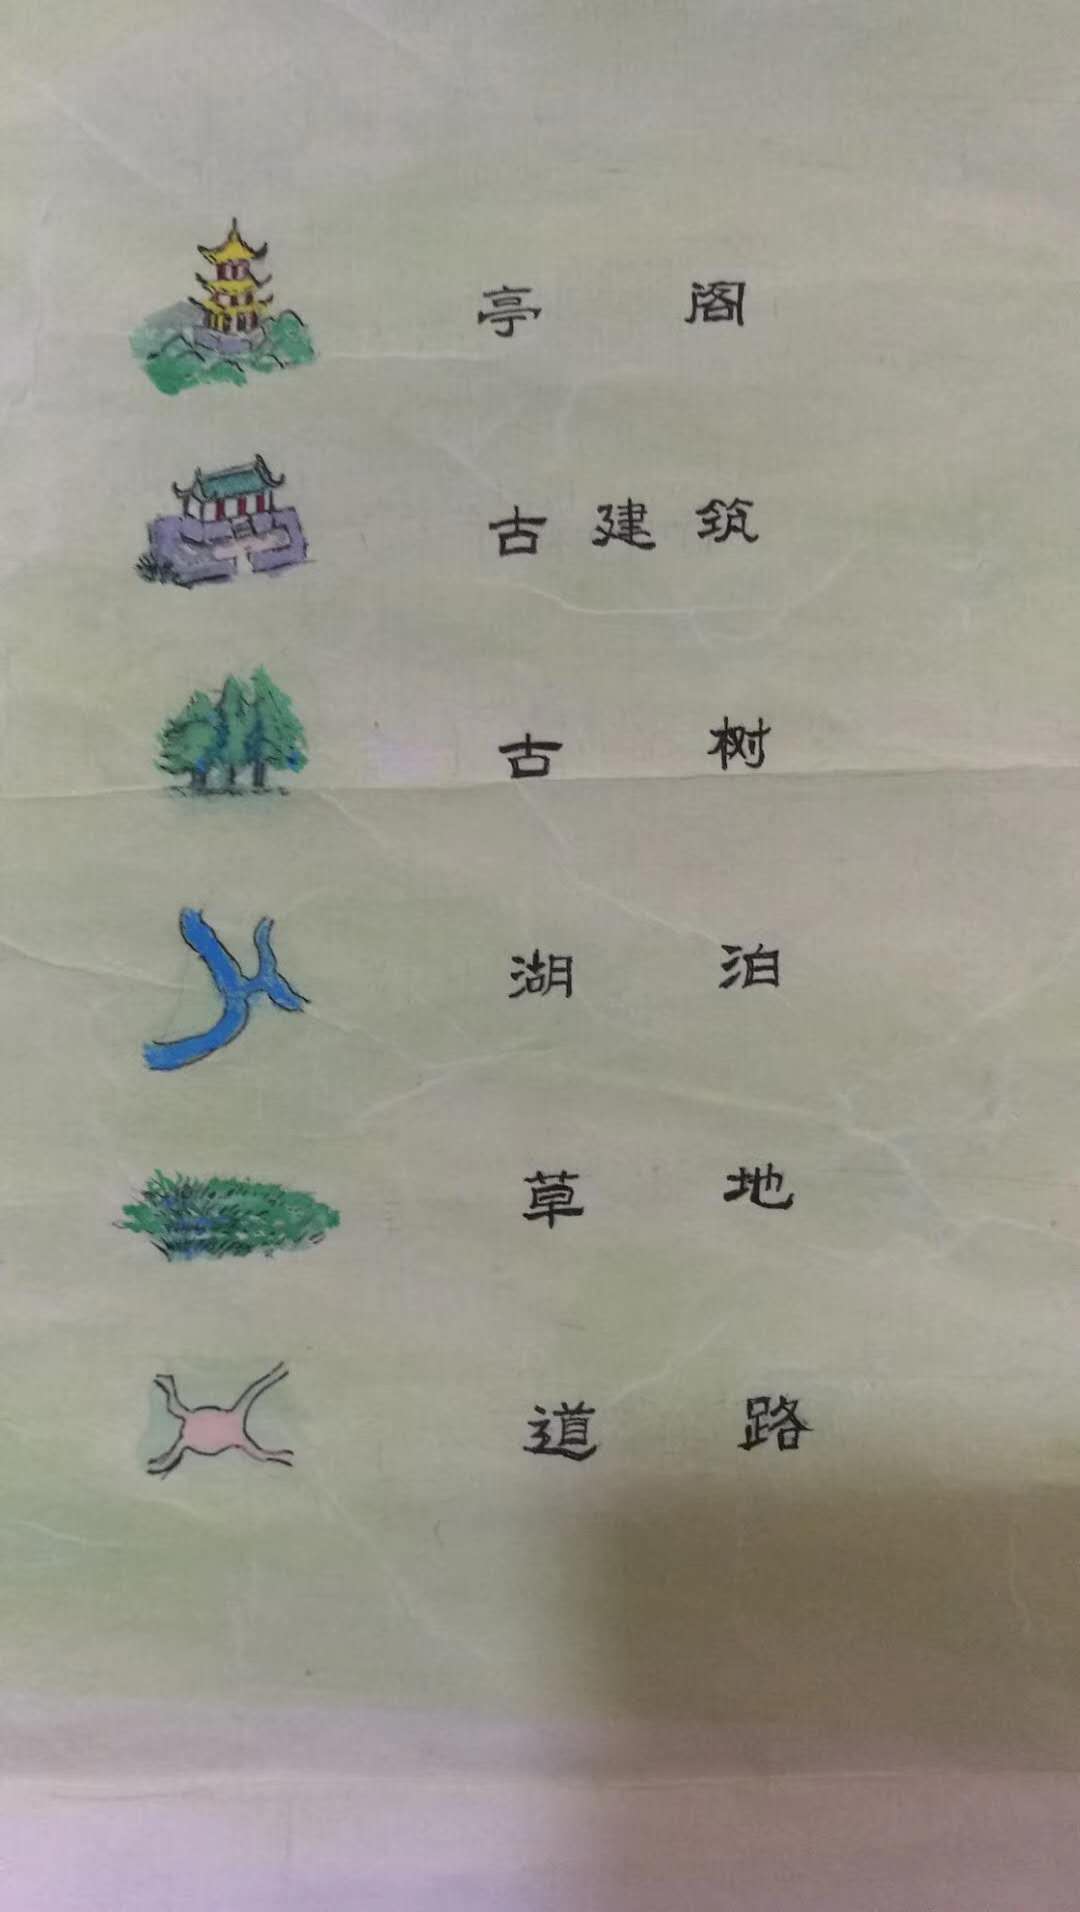 亭阁
古建筑
古树
湖泊
草地
道路